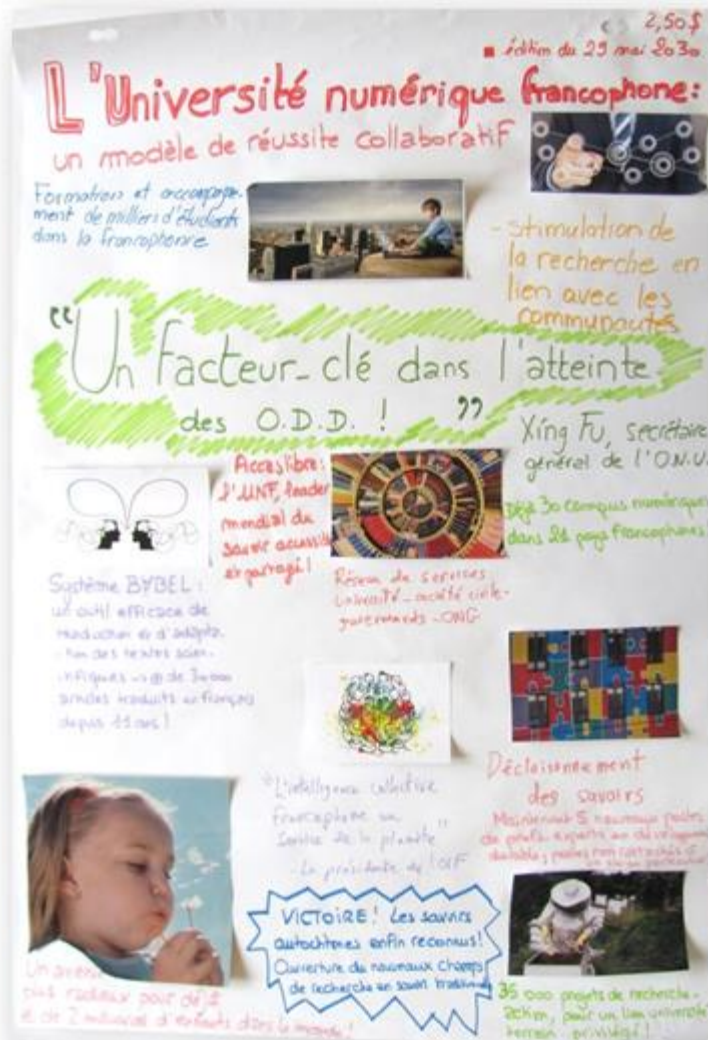 2,50$
édition du 29 mai 2030
L'Université numérique francophone:
un modèle de réussite collaboratif
Formation et accompagne-
ment de milliers d'étudiants
dans la francophonie
- Stimulation de
la recherche en
lien avec les
communautés
"Un facteur-clé dans l'atteinte
des O.D.D. ! "
Xing Fu, secrétaire
général de l'O.N.U.
Accès libre:
l'UNF, leader
mondial du
savoir accessible
et partagé!
Déjà 30 campus numériques
dans 21 pays francophones!
Système BYBEL :
un outil efficace de
traduction et d'adapta-
tion des textes scien-
tifiques de
articles traduits en français
depuis 11 ans !
Réseau de services
université - société civile -
ONG
"L'intelligence collective
francophone au
service de la planète"
- La présidente de l'OIF
Décloisonnement
des savoirs
Maintenant 5 nouveaux postes
de profs experts en
durable, postes non rattachés à
VICTOIRE! Les savoirs
autochtones enfin reconnus!
Ouverture de nouveaux champs
de recherche en savoir
Un avenir
plus radieux pour déjà
de 2 milliards d'enfants dans le monde!
35 000 projets de recherche-
action, pour un lien université
terrain privilégié !